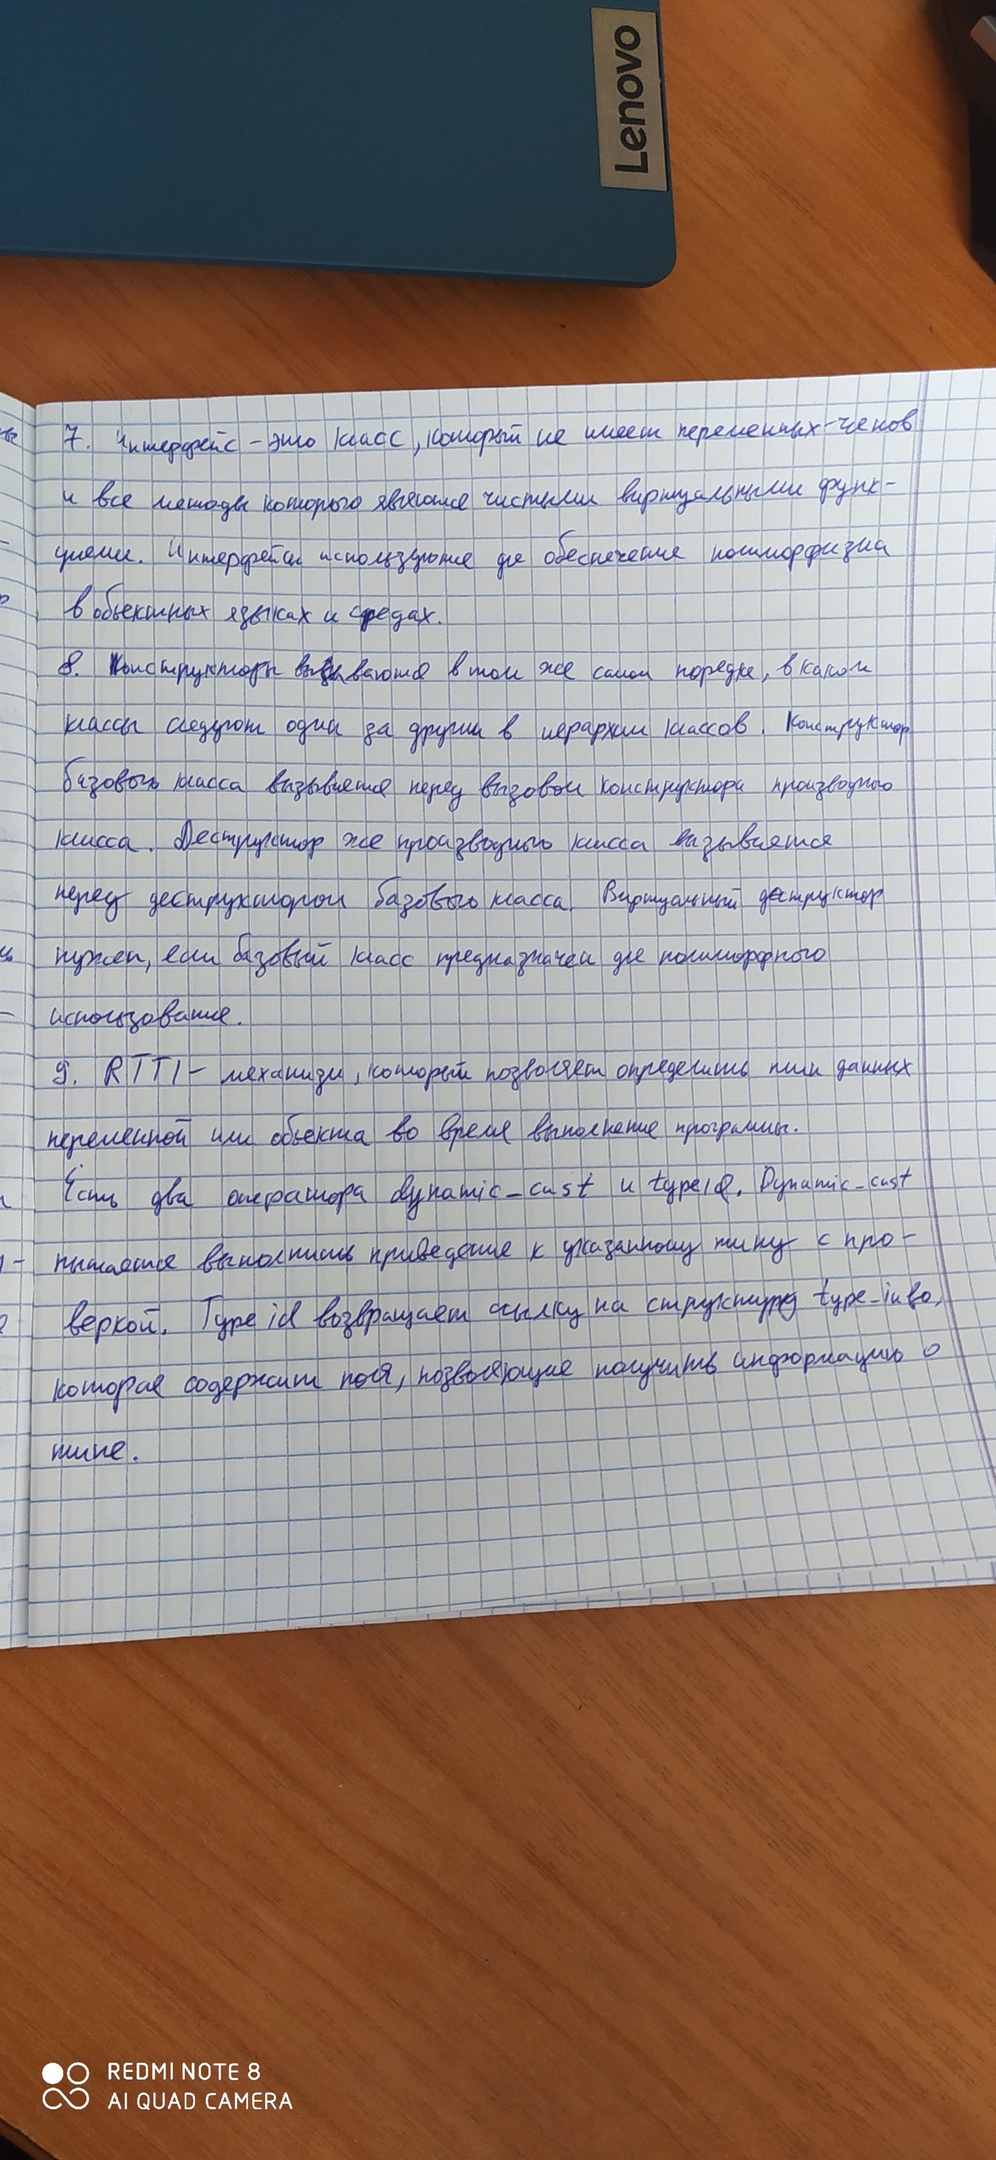 Lenovo
7. Интерфейс - это класс, который не имеет переменных-членов
и все методы которого являются чистыми виртуальными функ-
циями. Интерфейсы используются для обеспечения полиморфизма
в объектных языках и средах.
8. Конструкторы вызываются в том же самом порядке, в каком
классы следуют один за другим в иерархии классов. Конструктор
базового класса вызывается перед вызовом конструктора производного
класса. Деструктор же производного класса вызывается
перед деструктором базового класса. Виртуальный деструктор
нужен, если базовый класс предназначен для полиморфного
использования.
9. RTTI - механизм, который позволяет определить тип данных
переменной или объекта во время выполнения программы.
Есть два оператора dynamic_cast и typeid. Dynamic_cast
пытается выполнить приведение к указанному типу с про-
веркой. Type id возвращает ссылку на структуру type_info,
которая содержит поля, позволяющие получить информацию о
типе.
REDMI NOTE 8
AI QUAD CAMERA